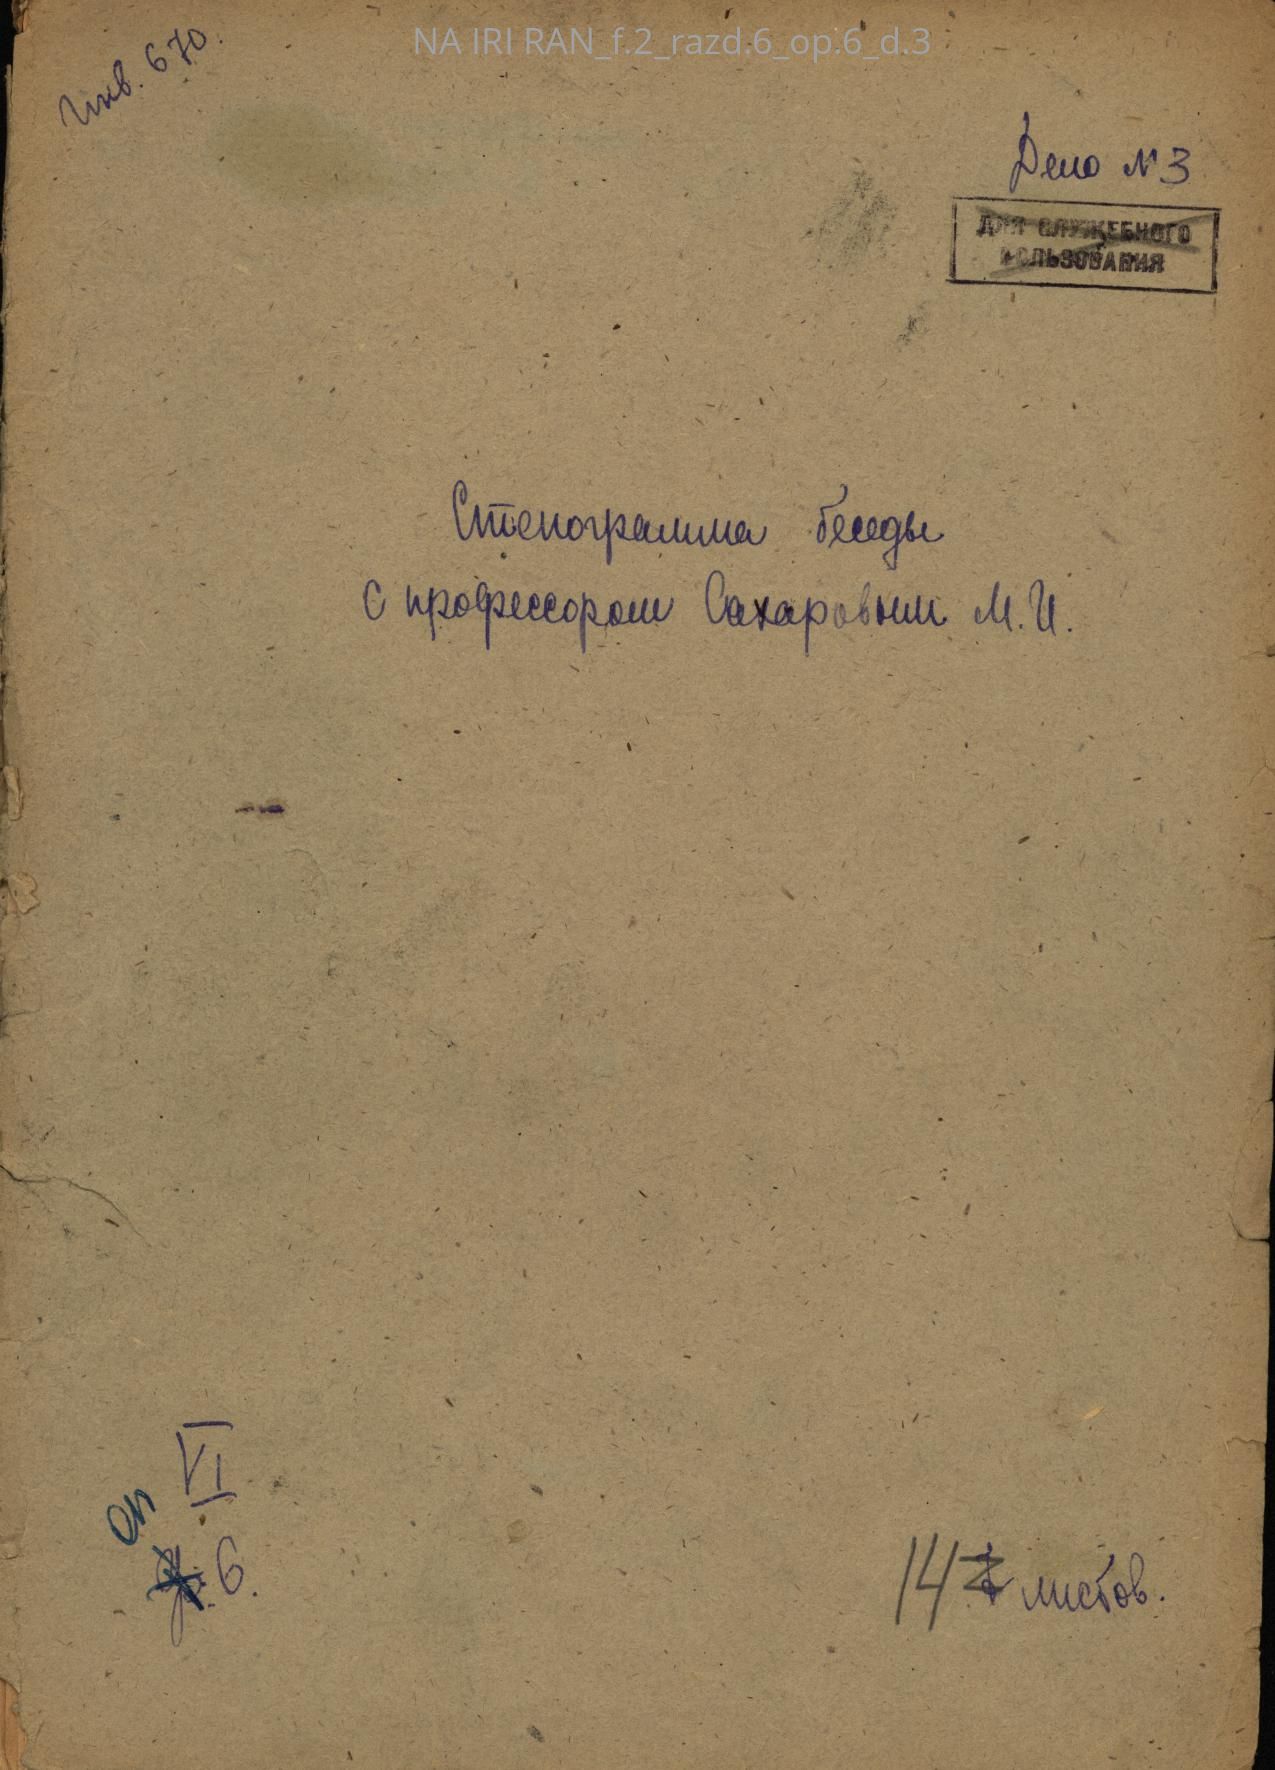 NA IRI RAN_f.2_razd.6_op.6_d.3
Инв. 670.
Дело №3
ДЛЯ СЛУЖЕБНОГО
ПОЛЬЗОВАНИЯ
Стенограмма беседы
с профессором Сахаровым М.И.
VI
оп
6.
14 листов.